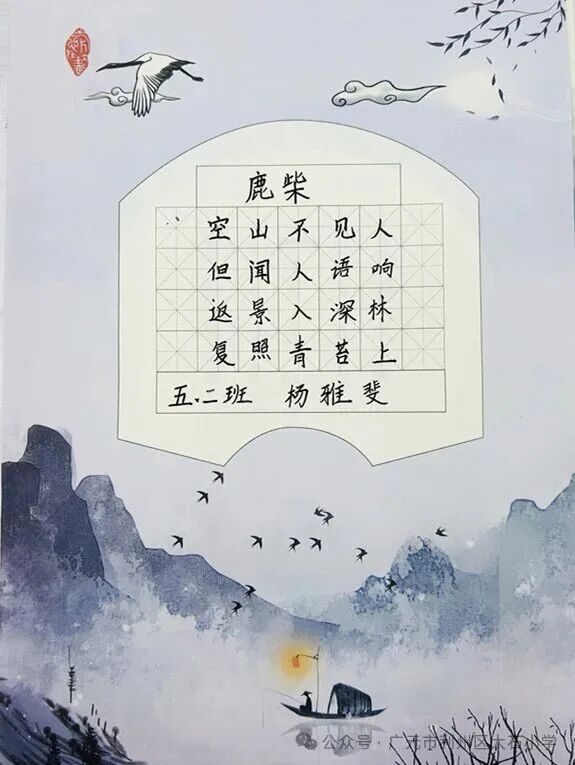 鹿柴
空山不见人
但闻人语响
返景入深林
复照青苔上
五.二班 杨雅斐
公众号·广元市利州区大石小学